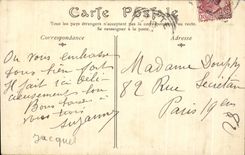 Carte Postale
Tous les pays étrangers n'acceptent pas la correspondance au recto.
Se renseigner à la poste
Correspondance
Adresse
On vous embrasse
tous bien fort
Il fait bon déli-
cieusement bon
Bons baisers
Suzanne
Jacques
Madame Doupsy
82 Rue Secrétan
Paris 19em